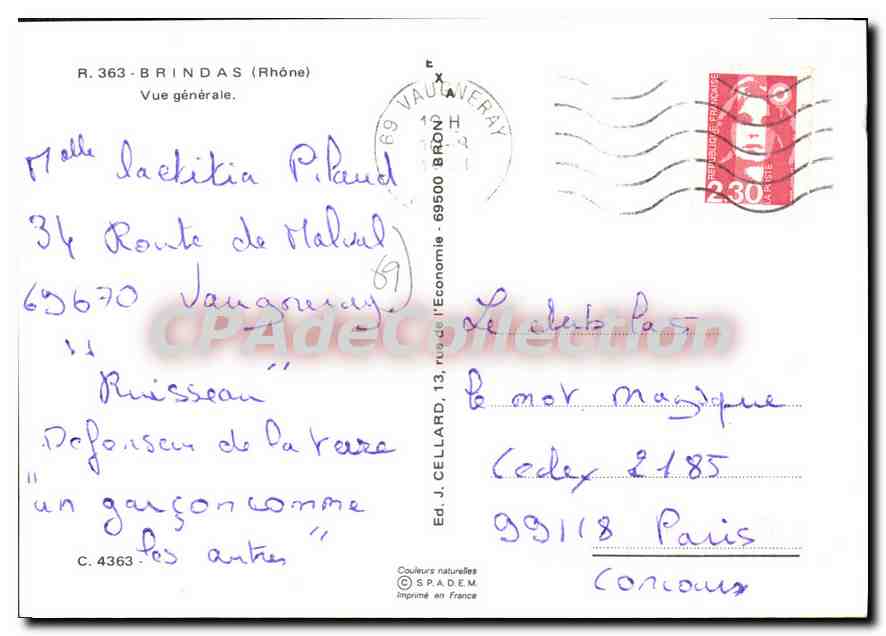 R. 363 - BRINDAS (Rhône)
Vue générale.
Malle laetitia Pilaud
34 Route de Malval
69670 Vaugneray
69
"Ruisseau"
Defenseur de la terre
"un garçon comme
les autres"
C. 4363
EXA
Ed. J. CELLARD, 13, rue de l'Economie - 69500 BRON
Couleurs naturelles
© S.P.A.D.E.M.
Imprimé en France
69 VAUGNERAY
19 H
REPUBLIQUE FRANÇAISE
2,30
LA POSTE
Le club Las
le mot magique
Cedex 2185
99118 Paris
Concours
CPAdeCollection